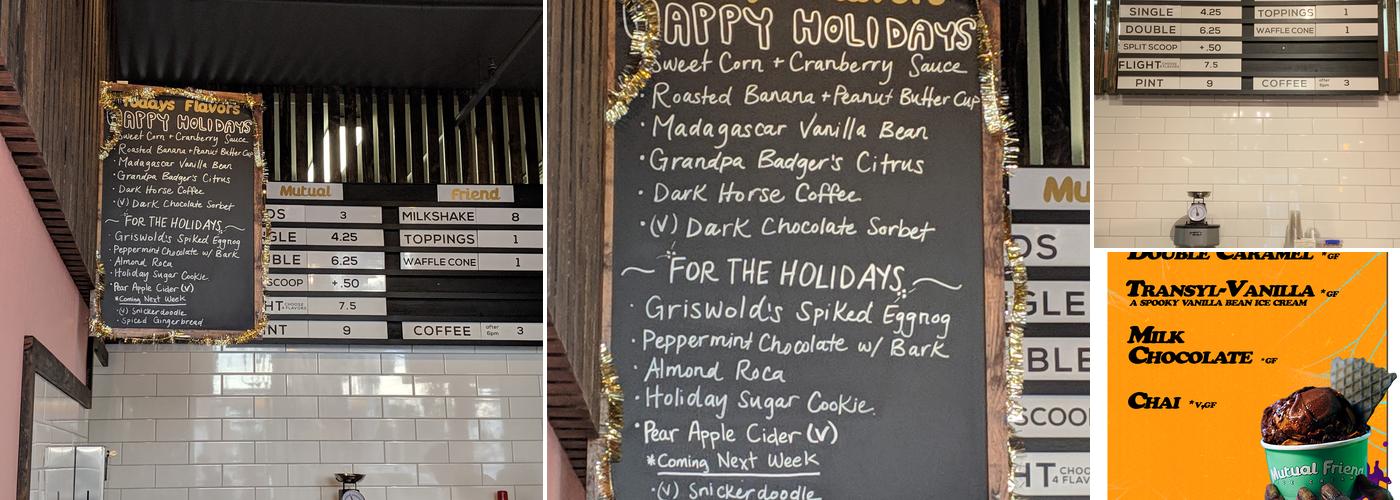 Todays Flavors
HAPPY HOLIDAYS
Sweet Corn + Cranberry Sauce
Roasted Banana + Peanut Butter Cup
· Madagascar Vanilla Bean
· Grandpa Badger's Citrus
· Dark Horse Coffee
· (V) Dark Chocolate Sorbet
~ FOR THE HOLIDAYS ~
Griswold's Spiked Eggnog
· Peppermint Chocolate w/ Bark
· Almond Roca
· Holiday Sugar Cookie
· Pear Apple Cider (V)
*Coming Next Week
· (V) Snickerdoodle
· Spiced Gingerbread
Mutual Friend
OS 3 MILKSHAKE 8
GLE 4.25 TOPPINGS 1
BLE 6.25 WAFFLE CONE 1
SCOOP +.50
HT CHOOSE 4 FLAVORS 7.5
INT 9 COFFEE after 6pm 3
APPY HOLIDAYS
Sweet Corn + Cranberry Sauce
Roasted Banana + Peanut Butter Cup
· Madagascar Vanilla Bean
· Grandpa Badger's Citrus
· Dark Horse Coffee
· (V) Dark Chocolate Sorbet
~ FOR THE HOLIDAYS ~
· Griswold's Spiked Eggnog
· Peppermint Chocolate w/ Bark
· Almond Roca
· Holiday Sugar Cookie.
· Pear Apple Cider (V)
*Coming Next Week
· (V) Snickerdoodle
Mu
OS
GLE
BLE
SCOOP
HT CHOO 4 FLAV
SINGLE 4.25 TOPPINGS 1
DOUBLE 6.25 WAFFLE CONE 1
SPLIT SCOOP +.50
FLIGHT 7.5
PINT 9 COFFEE after 6pm 3
DOUBLE CARAMEL *GF
TRANSYL-VANILLA *GF
A SPOOKY VANILLA BEAN ICE CREAM
MILK
CHOCOLATE *GF
CHAI *V,GF
Mutual Friend